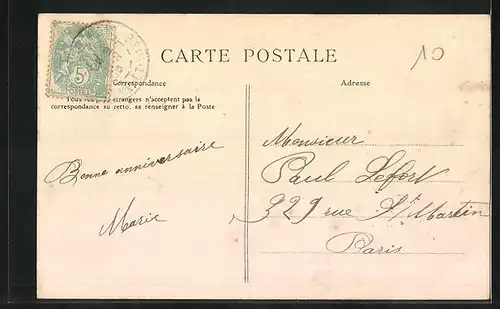 CARTE POSTALE
10
5
Correspondance
Adresse
Tous les pays étrangers n'acceptent pas la
correspondance au recto, se renseigner à la Poste
Monsieur
Bonne anniversaire
Paul Lefort
Marie
329 rue St Martin
Paris